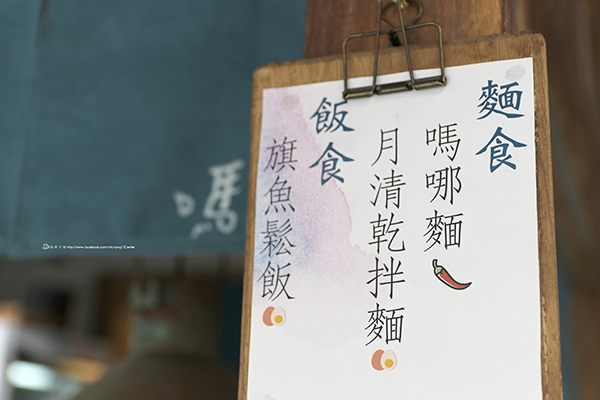 麵食
嗎哪麵
月清乾拌麵
飯食
旗魚鬆飯
嗎